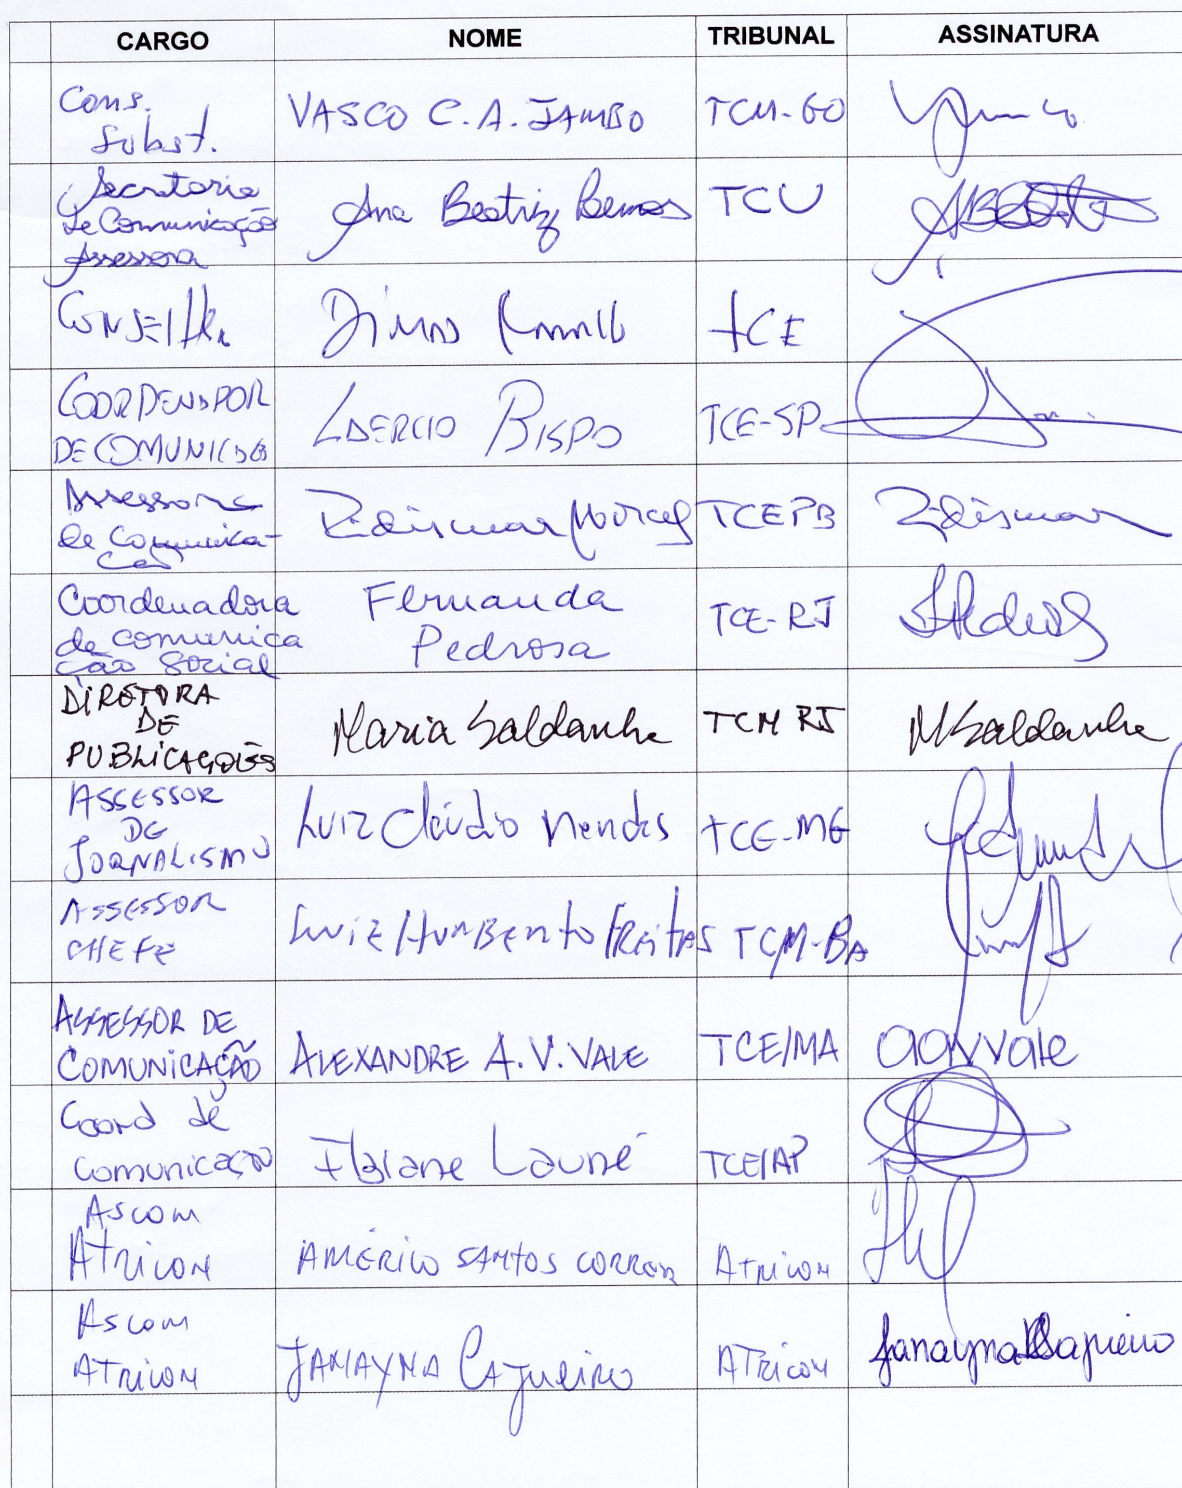 CARGO NOME TRIBUNAL ASSINATURA
Cons. Subst. VASCO C. A. JAMBO TCM-GO
Secretaria de Comunicação Assessora Ana Beatriz Lemos TCU
CONSElHeiro Dimas TCE
COORDENADOR DE COMUNICAÇÃO LAERCIO BISPO TCE-SP
Assessora de Comunica- ção Ridismar TCEPB Ridismar
Coordenadora de comunica ção Social Fernanda Pedrosa TCE-RJ
DIRETORA DE PUBLICAÇÕES Maria Saldanha TCM RJ MSaldanha
ASSESSOR DE JORNALISMO Luiz Cláudio Mendes TCE-MG
ASSESSOR CHEFE Luiz HumBerto FREitAS TCM-BA
ASSESSOR DE COMUNICAÇÃO ALEXANDRE A. V. VALE TCE/MA aavvale
Coord de Comunicação Floriane Launé TCE/AP
Ascom Atricon AMÉRICO SANTOS CORREA Atricon
Ascom ATricon JANAYNA CAJueiro ATricon